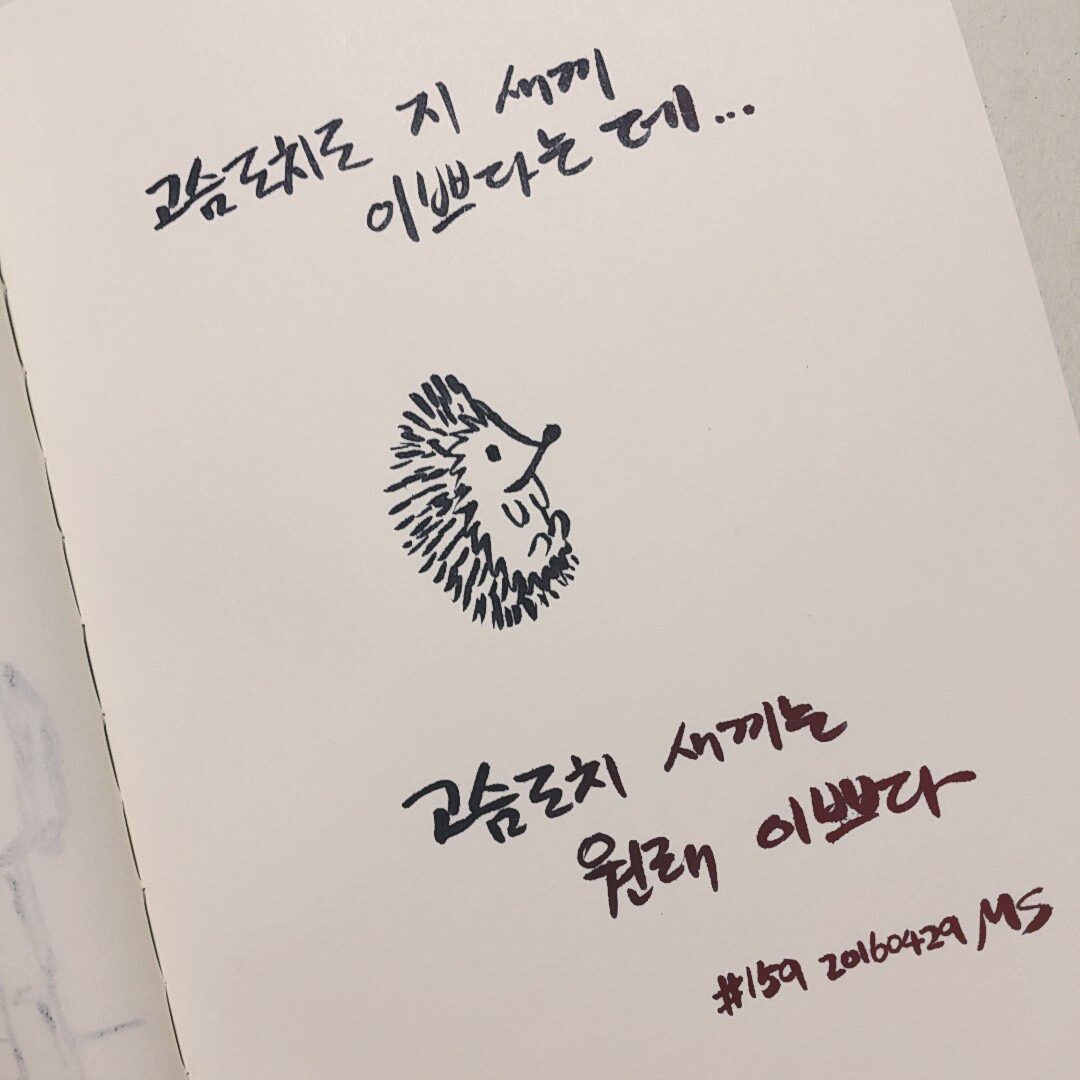 고슴도치도 지 새끼
이쁘다는데...
고슴도치 새끼는
원래 이쁘다
#159 20160429 MS